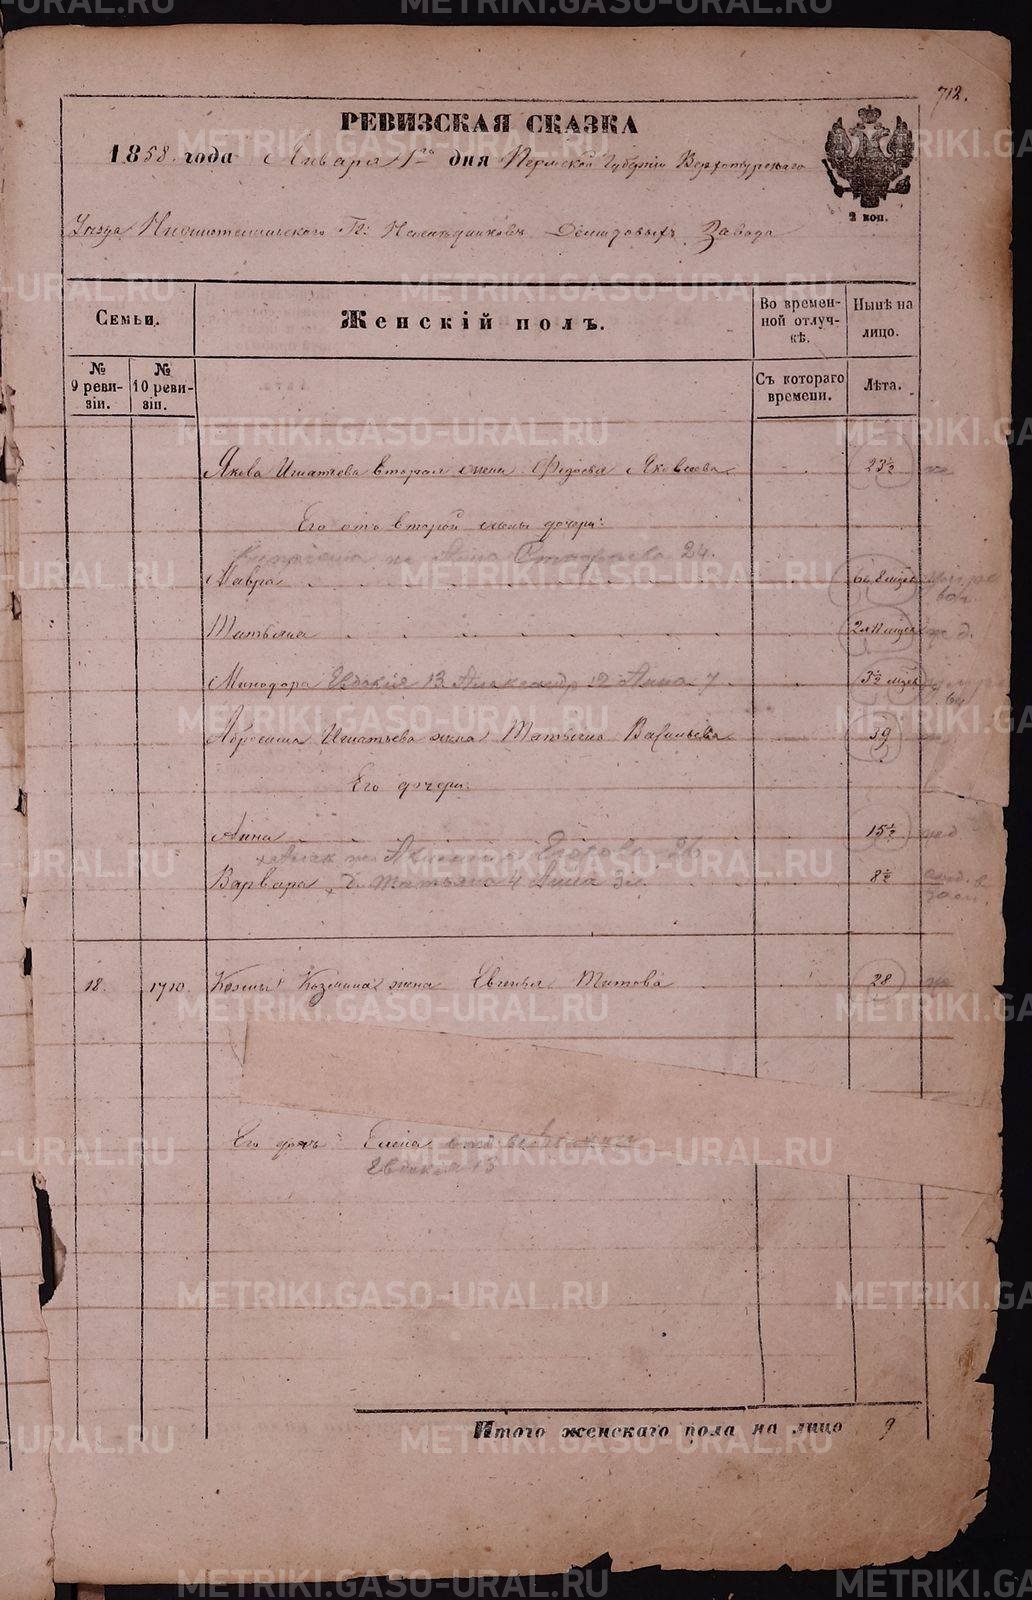 712.
РЕВИЗСКАЯ СКАЗКА
1858 года Января 1го дня Пермской Губернiи Верхотурскаго
2 коп.
Уезда Нижнотагильскаго Гг: Наследниковъ Демидовыхъ Завода
Семьи.
Женскій полъ.
Во времен-
ной отлуч-
кѣ.
Нынѣ на
лицо.
№
9 реви-
зіи.
№
10 реви-
зіи.
Съ котораго
времени.
Лѣта.
Якова Игнатьева вторая жена Федосья Яковлева 23½
Его отъ второй жены дочери:
Анна 24.
Мавра 6 л. 8 мцев
Татьяна 2 л 11 мцев
Минодора Евдокiя 13 Александр 12 Анна 7 3½ мцев
Абросима Игнатьева жена Татьяна Васильева 39
Его дочери:
Анна 15½
Акилина Егорова 26
Варвара Татьяна 4 Анна 3 8½
18. 1710. Козьмы Козмина жена Евгенья Титова 28
Его дочь Елена
Евдокия 13
Итого женскаго пола на лицо 9
METRIKI.GASO-URAL.RU